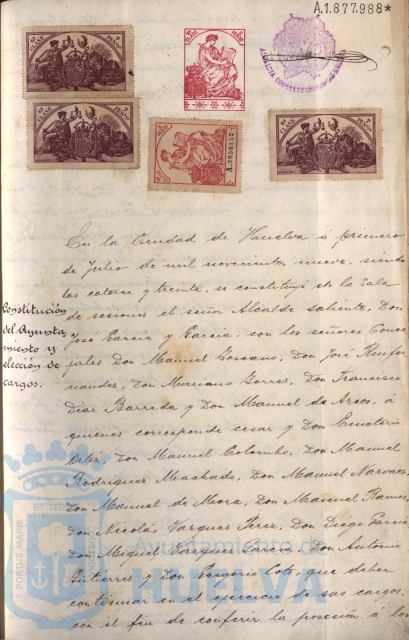 A.1.877.988*
A.2856152
En la Ciudad de Huelva á primero
de Julio de mil novecientos nueve, siendo
las catorce y treinta, se constituyó en la Sala
de sesiones el señor Alcalde saliente, Don
José García y García, con los señores Conce
jales Don Manuel Don José
nandez, Don Mariano Don Francisco
Díaz Barreda y Don Manuel de Arcos, á
quienes corresponde cesar y Don Emeterio
Don Manuel Colombo, Don Manuel
Rodríguez Machado, Don Manuel Narvaez,
Don Manuel de Mora, Don Manuel Ramos,
Don Nicolás Vazquez Perez, Don Diego Garcia
Don Miguel Vazquez Garcia, Don Antonio
Gutierrez y Don Gregorio que deben
continuar en el ejercicio de sus cargos,
con el fin de conferir la posesión á los
Constitución
del Ayunta
miento y
elección de
cargos.
PORTUS MARIS
ET TERRAE
Ayuntamiento de
HUELVA